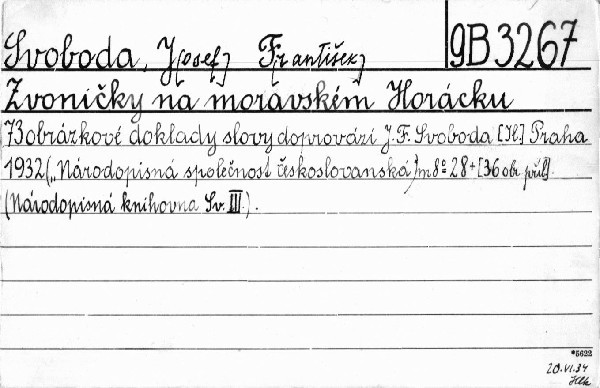 Svoboda, J[osef] F[rantišek] 9B3267
Zvoničky na moravském Horácku
73 obrázkové doklady slovy doprovází J. F. Svoboda [Il.] Praha
1932 („Národopisná společnost československá“) m 8° 28 + [36 obr. příl.].
(Národopisná knihovna Sv. III.).
*5622
20.VI.34